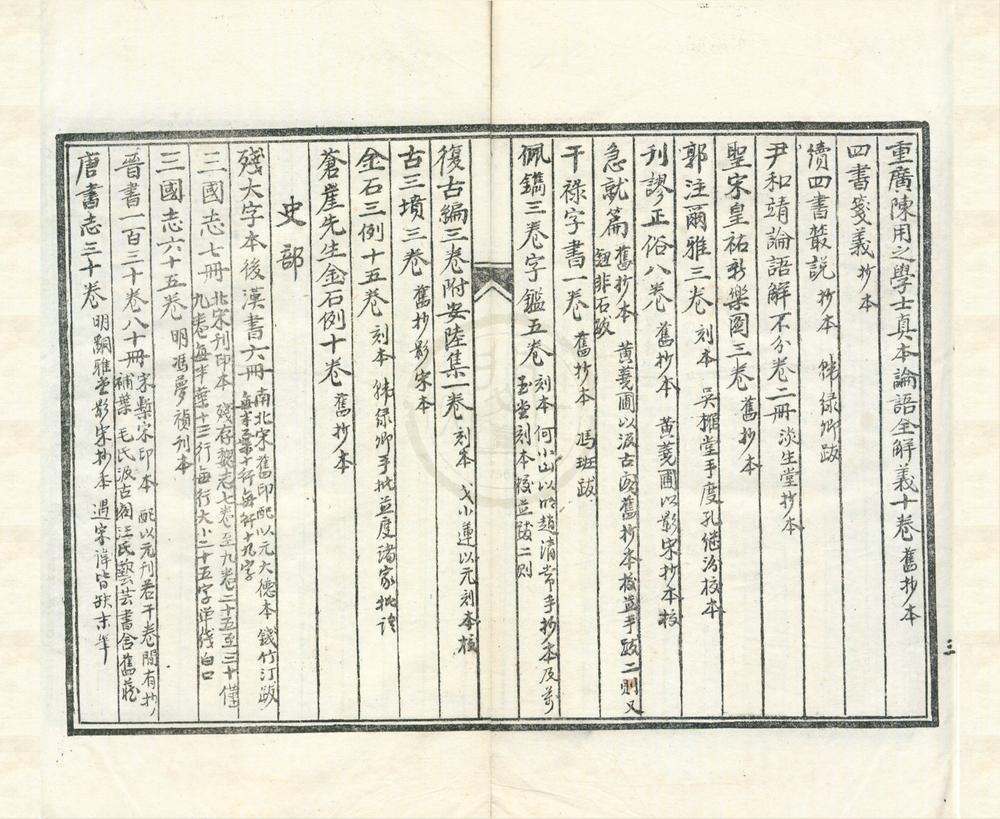 重廣陳用之學士真本論語全解義十卷 舊抄本
四書箋義 抄本
續四書叢說 抄本 韓綠卿跋
尹和靖論語解不分卷二冊 淡生堂抄本
聖宋皇祐新樂圖三卷 舊抄本
郭注爾雅三卷 刻本 吳榷堂手度孔繼汾校本
刊謬正俗八卷 舊抄本 黃蕘圃以影宋抄本校
急就篇 舊抄本 黃蕘圃以汲古閣舊抄本校並手跋二則又
鈕非石跋
干祿字書一卷 舊抄本 馮班跋
佩觿三卷字鑑五卷 刻本 何小山以明趙清常手抄本及萬
玉堂刻本校並跋二則
復古編三卷附安陸集一卷 刻本 戈小蓮以元刻本校
古三墳三卷 舊抄影宋本
金石三例十五卷 刻本 韓綠卿手批並度諸家批語
蒼崖先生金石例十卷 舊抄本
史部
殘大字本後漢書六冊 南北宋舊印配以元大德本 錢竹汀跋
每半葉十行每行十九字
三國志七冊 北宋刊印本 殘存魏志七卷至九卷二十五至三十僅
九卷每半葉十三行每行大小二十五字單邊白口
三國志六十五卷 明馮夢禎刊本
晉書一百三十卷八十冊 宋槧宋印本 配以元刊若干卷間有抄
補葉 毛氏汲古閣汪氏藝芸書舍舊藏
唐書志三十卷 明嗣雅堂影宋抄本 遇宋諱皆缺末筆
三